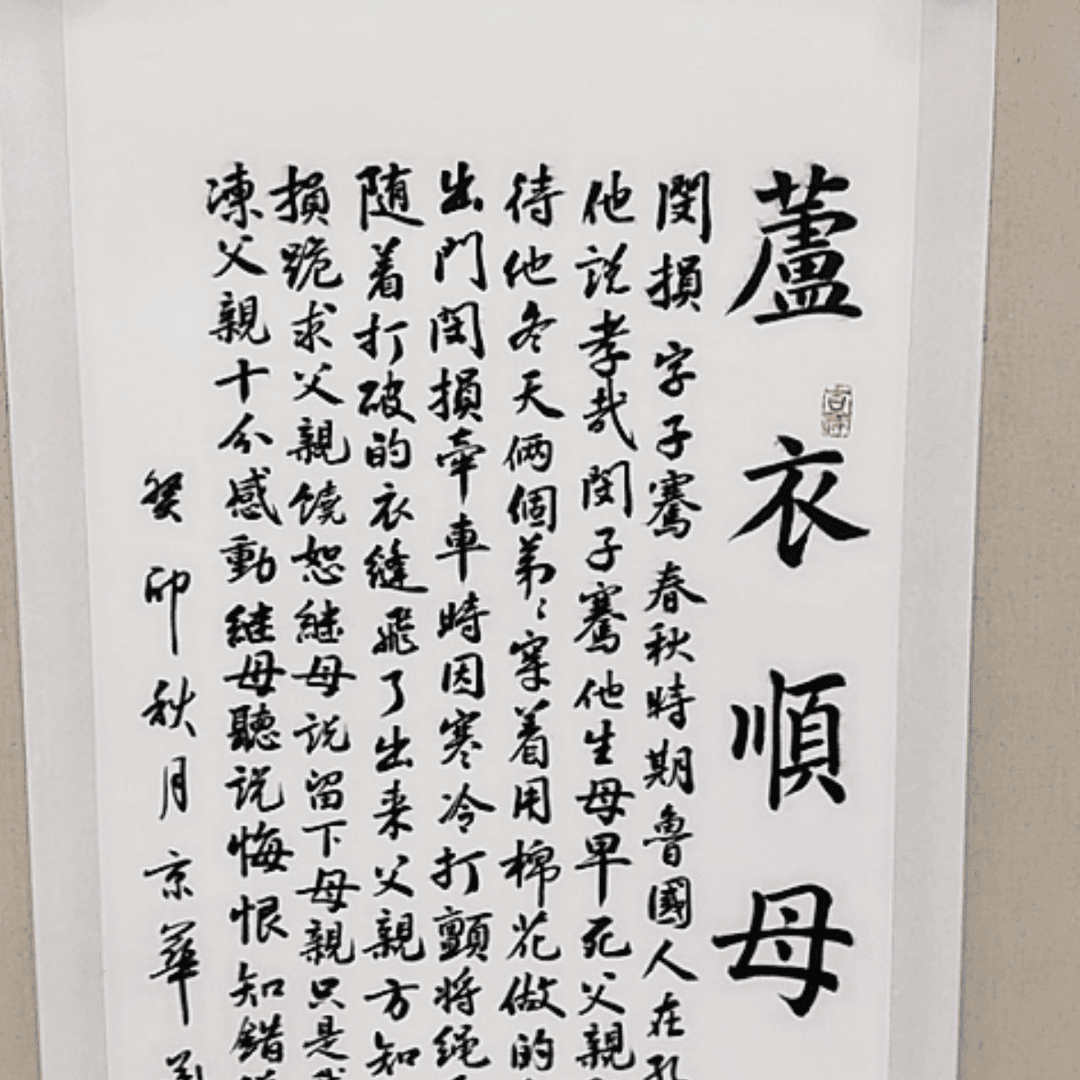 蘆衣順母
吉祥
閔損字子騫春秋時期魯國人在孔
他説孝哉閔子騫他生母早死父親
待他冬天俩個弟〻穿着用棉花做的
出門閔損牽車時因寒冷打顫将绳
随着打破的衣缝飛了出来父親方知
損跪求父親饶恕継母説留下母親只是我
凍父親十分感動継母聽説悔恨知錯
癸卯秋月京華